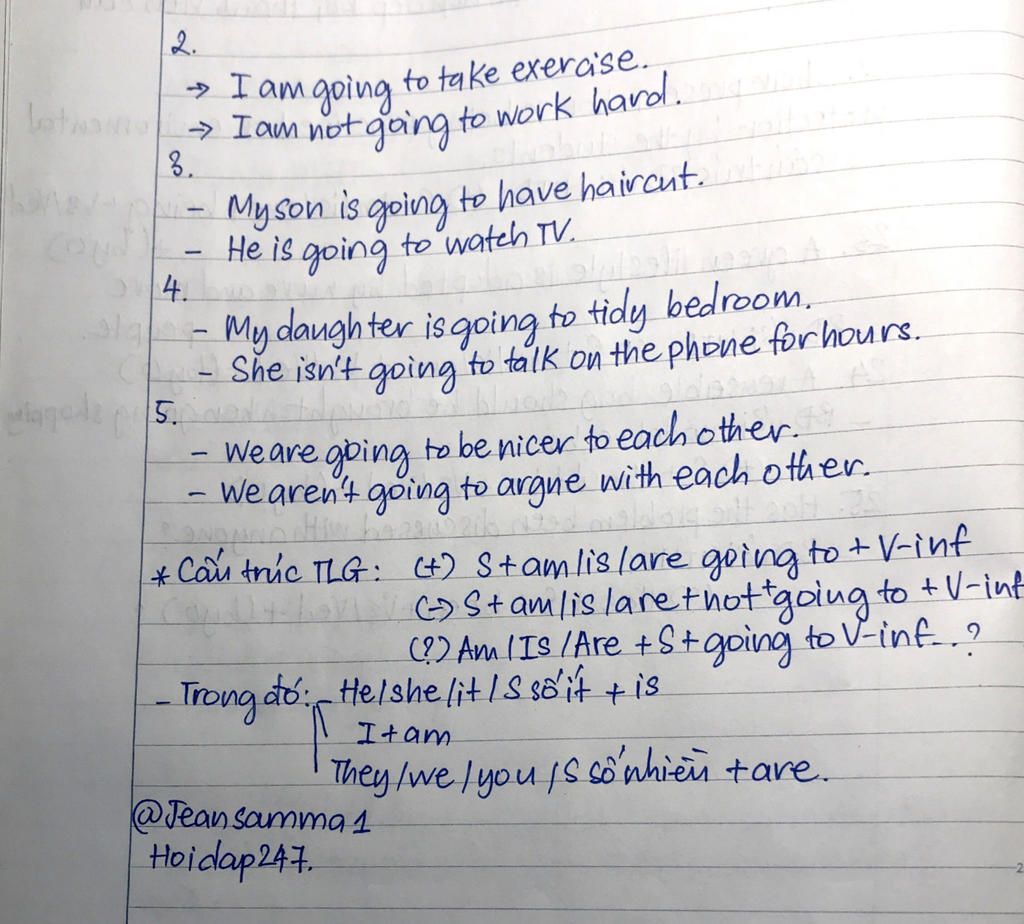 2.
→ I am going to take exercise.
→ I am not going to work hard.
3.
- My son is going to have haircut.
- He is going to watch TV.
4.
- My daughter is going to tidy bedroom.
- She isn't going to talk on the phone for hours.
5.
- We are going to be nicer to each other.
- We aren't going to argue with each other.
* Cấu trúc TLG: (+) S + am/is/are going to + V-inf
(-) S + am/is/are + not + going to + V-inf
(?) Am/Is/Are + S + going to V-inf...?
- Trong đó: - He/she/it/S số ít + is
I + am
They/we/you/S số nhiều + are.
@Jeansamma1
Hoidap247.